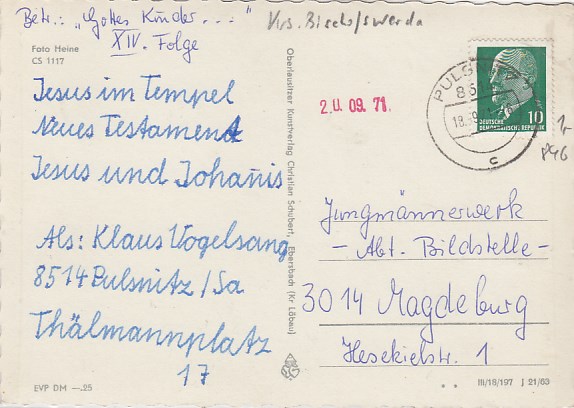 Betr.: „Gottes Kinder...“
XIV. Folge
Krs. Bischofswerda
Foto Heine
CS 1117
Jesus im Tempel
Neues Testament
Jesus und Johañis
Abs: Klaus Vogelsang
8514 Pulsnitz/Sa
Thälmannplatz
17
EVP DM —.25
Oberlausitzer Kunstverlag Christian Schubert, Ebersbach (Kr Löbau)
2.0. 09. 71.
PULSNITZ
8514
18.-9.
c
10
DEUTSCHE
DEMOKRATISCHE REPUBLIK
1,-
846
Jungmännerwerk
- Abt. Bildstelle -
3014 Magdeburg
Hesekielstr. 1
III/18/197 J 21/63